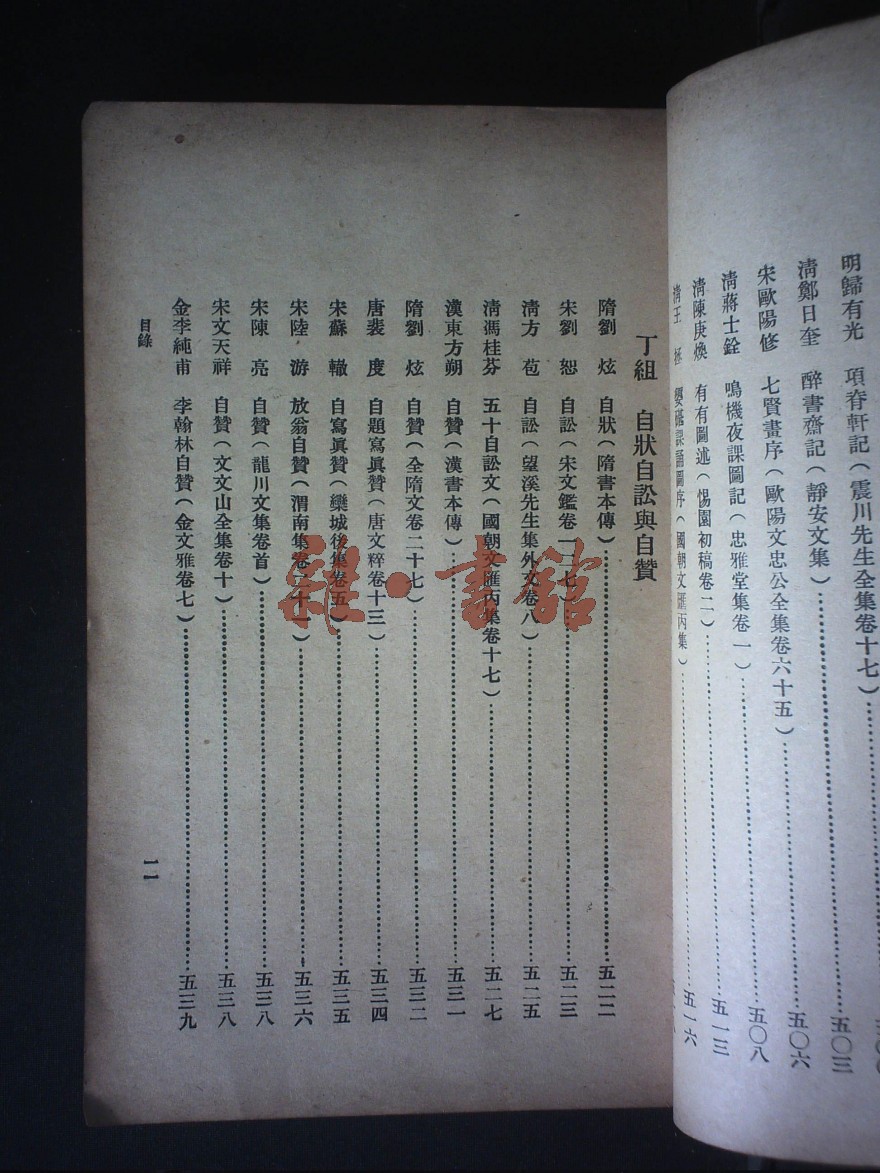 明歸有光　項脊軒記(震川先生全集卷十七)
清鄭日奎　醉書齋記(靜安文集)……五〇三
宋歐陽修　七賢畫序(歐陽文忠公全集卷六十五)……五〇六
清蔣士銓　鳴機夜課圖記(忠雅堂集卷一)……五〇八
清陳庚煥　有有圖述(惕園初稿卷二)……五一三
清王　拯　課誦圖序(國朝文匯丙集)……五一六
丁組　自狀自訟與自贊
隋劉　炫　自狀(隋書本傳)……五二二
宋劉　恕　自訟(宋文鑑卷一二七)……五二三
清方　苞　自訟(望溪先生集外文卷八)……五二五
清馮桂芬　五十自訟文(國朝文匯丙集卷十七)……五二七
漢東方朔　自贊(漢書本傳)……五三一
隋劉　炫　自贊(全隋文卷二十七)……五三二
唐裴　度　自題寫眞贊(唐文粹卷十三)……五三四
宋蘇　轍　自寫眞贊(欒城後集卷五)……五三五
宋陸　游　放翁自贊(渭南集卷二十一)……五三六
宋陳　亮　自贊(龍川文集卷首)……五三八
宋文天祥　自贊(文文山全集卷十)……五三八
金李純甫　李翰林自贊(金文雅卷七)……五三九
目錄
一一
雜·書館